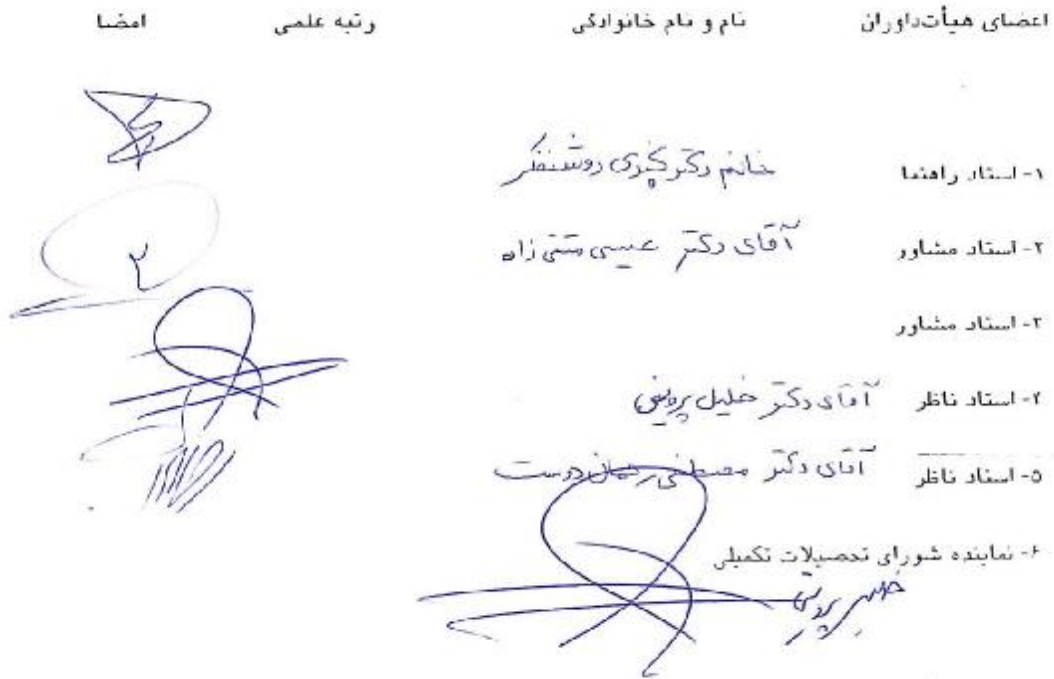 اعضای هیأت‌داوران نام و نام خانوادگی رتبه علمی امضا
۱- استاد راهنما خانم دکتر کبری روشنفکر
۲- استاد مشاور آقای دکتر عیسی متقی زاده
۳- استاد مشاور
۴- استاد ناظر آقای دکتر خلیل پروینی
۵- استاد ناظر آقای دکتر مصطفی رحماندوست
۶- نماینده شورای تحصیلات تکمیلی
خلیل پروینی